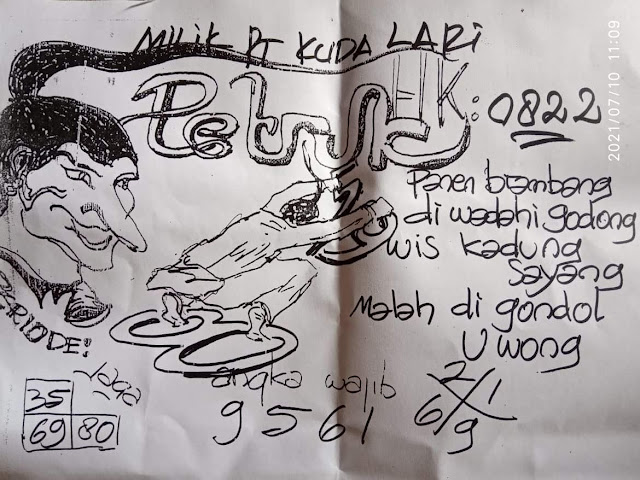 MILIK PT KUDA LARI
Petruk
HK: 0822
Panen brambang
di wadahi godong
wis kadung
sayang
Malah di gondol
Uwong
PERIODE:
Jaga
35
69 80
angka wajib
9 5 6 1
2 1
6 9
2021/07/10 11:09